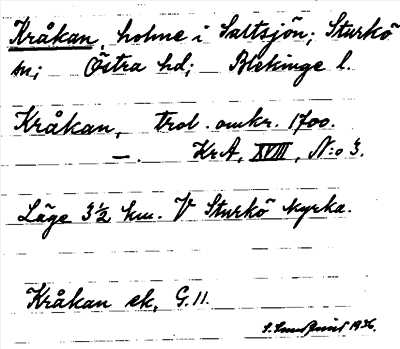 Kråkan, holme i Saltsjön; Sturkö
sn; Östra hd; Blekinge l.
Kråkan, trol. omkr. 1700.
—. KrA, XVIII, N:o 3.
Läge 3½ km. V Sturkö kyrka.
Kråkan ek, G.11.
1936.